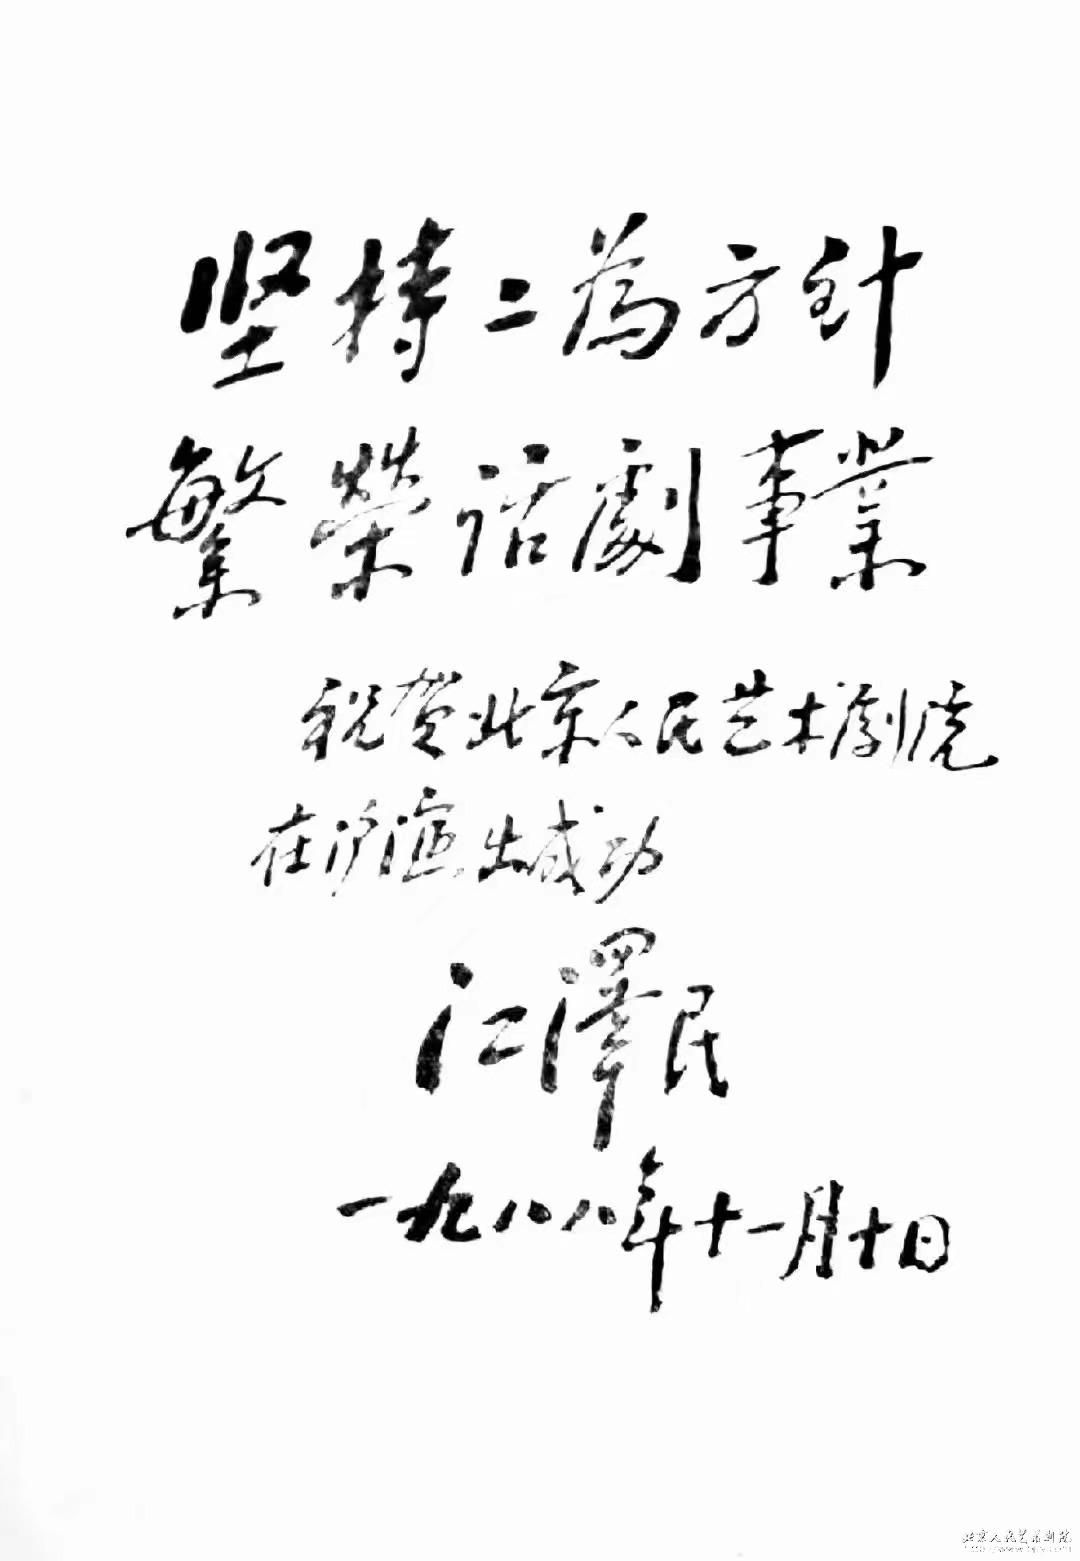 坚持二為方针
繁榮话劇事業
祝贺北京人民艺术劇院
在沪演出成功
江澤民
一九八八年十一月十日
北京人民艺术剧院